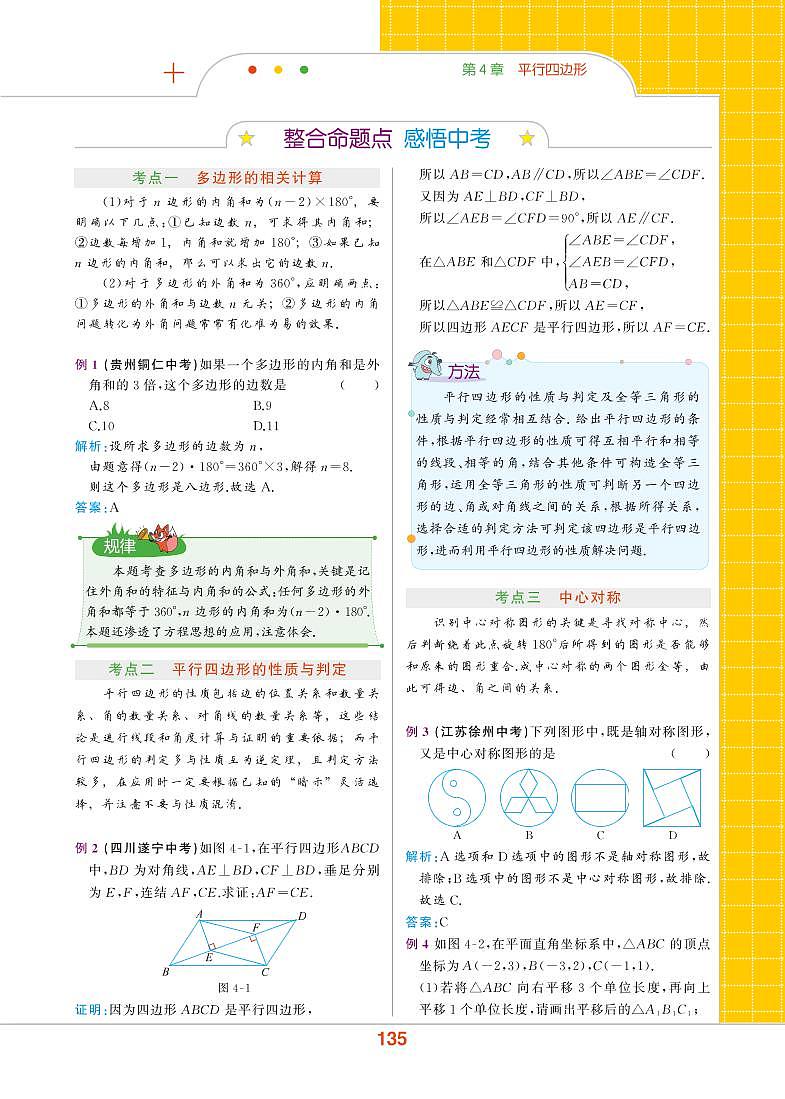 第4章 平行四边形
整合命题点 感悟中考
考点一 多边形的相关计算
(1)对于 n 边形的内角和为(n－2)×180°，要
明确以下几点:①已知边数 n，可求得其内角和;
②边数每增加1，内角和就增加 180°; ③如果已知
n 边形的内角和，那么可以求出它的边数 n.
(2)对于多边形的外角和为 360°,应明确两点:
①多边形的外角和与边数 n 无关; ②多边形的内角
问题转化为外角问题常常有化难为易的效果.
例 1 (贵州铜仁中考)如果一个多边形的内角和是外
角和的 3 倍,这个多边形的边数是 ( )
A.8 B.9
C.10 D.11
解析:设所求多边形的边数为 n,
由题意得(n－2)·180°＝360°×3,解得 n＝8.
则这个多边形是八边形.故选 A.
答案:A
规律
本题考查多边形的内角和与外角和,关键是记
住外角和的特征与内角和的公式:任何多边形的外
角和都等于 360°,n 边形的内角和为(n－2)·180°.
本题还渗透了方程思想的应用,注意体会.
考点二 平行四边形的性质与判定
平行四边形的性质包括边的位置关系和数量关
系、角的数量关系、对角线的数量关系等，这些结
论是进行线段和角度计算与证明的重要依据; 而平
行四边形的判定多与性质互为逆定理，且判定方法
较多，在应用时一定要根据已知的“暗示”灵活选
择，并注意不要与性质混淆.
例 2 (四川遂宁中考)如图 4-1,在平行四边形ABCD
中,BD 为对角线,AE⊥BD,CF⊥BD,垂足分别
为 E,F,连结 AF,CE.求证:AF＝CE.
A D
F
E
B C
图 4-1
证明:因为四边形 ABCD 是平行四边形,
所以 AB＝CD,AB∥CD,所以∠ABE＝∠CDF.
又因为 AE⊥BD,CF⊥BD,
所以∠AEB＝∠CFD＝90°,所以 AE∥CF.
∠ABE＝∠CDF,
在△ABE 和△CDF 中, ∠AEB＝∠CFD,
AB＝CD,
所以△ABE≌△CDF,所以 AE＝CF,
所以四边形 AECF 是平行四边形,所以 AF＝CE.
方法
平行四边形的性质与判定及全等三角形的
性质与判定经常相互结合. 给出平行四边形的条
件,根据平行四边形的性质可得互相平行和相等
的线段、相等的角,结合其他条件可构造全等三
角形,运用全等三角形的性质可判断另一个四边
形的边、角或对角线之间的关系,根据所得关系,
选择合适的判定方法可判定该四边形是平行四边
形,进而利用平行四边形的性质解决问题.
考点三 中心对称
识别中心对称图形的关键是寻找对称中心，然
后判断绕着此点旋转 180°后所得到的图形是否能够
和原来的图形重合.成中心对称的两个图形全等，由
此可得边、角之间的关系.
例 3 (江苏徐州中考)下列图形中,既是轴对称图形,
又是中心对称图形的是 ( )
A B C D
解析:A 选项和 D 选项中的图形不是轴对称图形,故
排除;B 选项中的图形不是中心对称图形,故排除.
故选 C.
答案:C
例 4 如图 4-2,在平面直角坐标系中,△ABC 的顶点
坐标为 A(－2,3),B(－3,2),C(－1,1).
(1)若将△ABC 向右平移 3 个单位长度,再向上
平移 1 个单位长度,请画出平移后的△A₁B₁C₁;
135